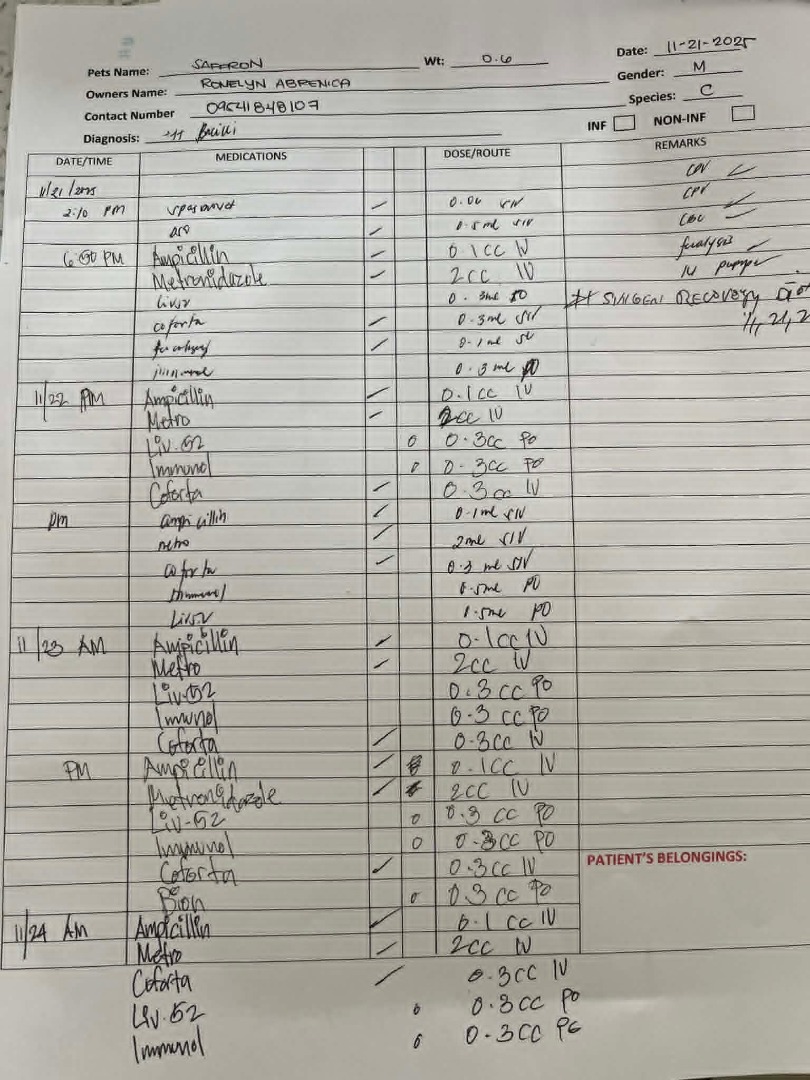 Date: 11-21-2025
Pets Name: SAFFRON Wt: 0.6
Gender: M
Owners Name: RONELYN ABRENICA
Species: C
Contact Number 09541848107
INF NON-INF
Diagnosis: Bacilli
DATE/TIME MEDICATIONS DOSE/ROUTE REMARKS
11/21/2025 CDV
2:10 PM 0.06 SIV CPV
0.5ml SIV CBC
6:00 PM Ampicillin 0.1cc IV fecalysis
Metronidazole 2cc IV IV pumper
Liv52 0.3ml PO SINGEN RECOVERY
coforta 0.3ml SIV 11, 21, 2
0.1ml
0.3ml PO
11/22 AM Ampicillin 0.1cc IV
Metro 2cc IV
Liv.52 0 0.3cc Po
Immunol 0 0.3cc PO
Coforta 0.3cc IV
pm ampicillin 0.1ml SIV
metro 2ml SIV
coforta 0.3ml SIV
Immunol 0.5ml PO
Liv52 0.5ml PO
11/23 AM Ampicillin 0.1cc IV
Metro 2cc IV
Liv-52 0.3cc Po
Imunol 0.3cc PO
Coforta 0.3cc IV
PM Ampicillin 0.1cc IV
Metronidazole 2cc IV
Liv-52 0 0.3 cc PO
Immunol 0 0.3cc PO
Coforta 0.3cc IV
PATIENT'S BELONGINGS:
Bion 0 0.3cc Po
11/24 AM Ampicillin 0.1 cc IV
Metro 2cc IV
Coforta 0.3cc IV
Liv.52 0 0.3cc Po
Immunol 0 0.3cc Po